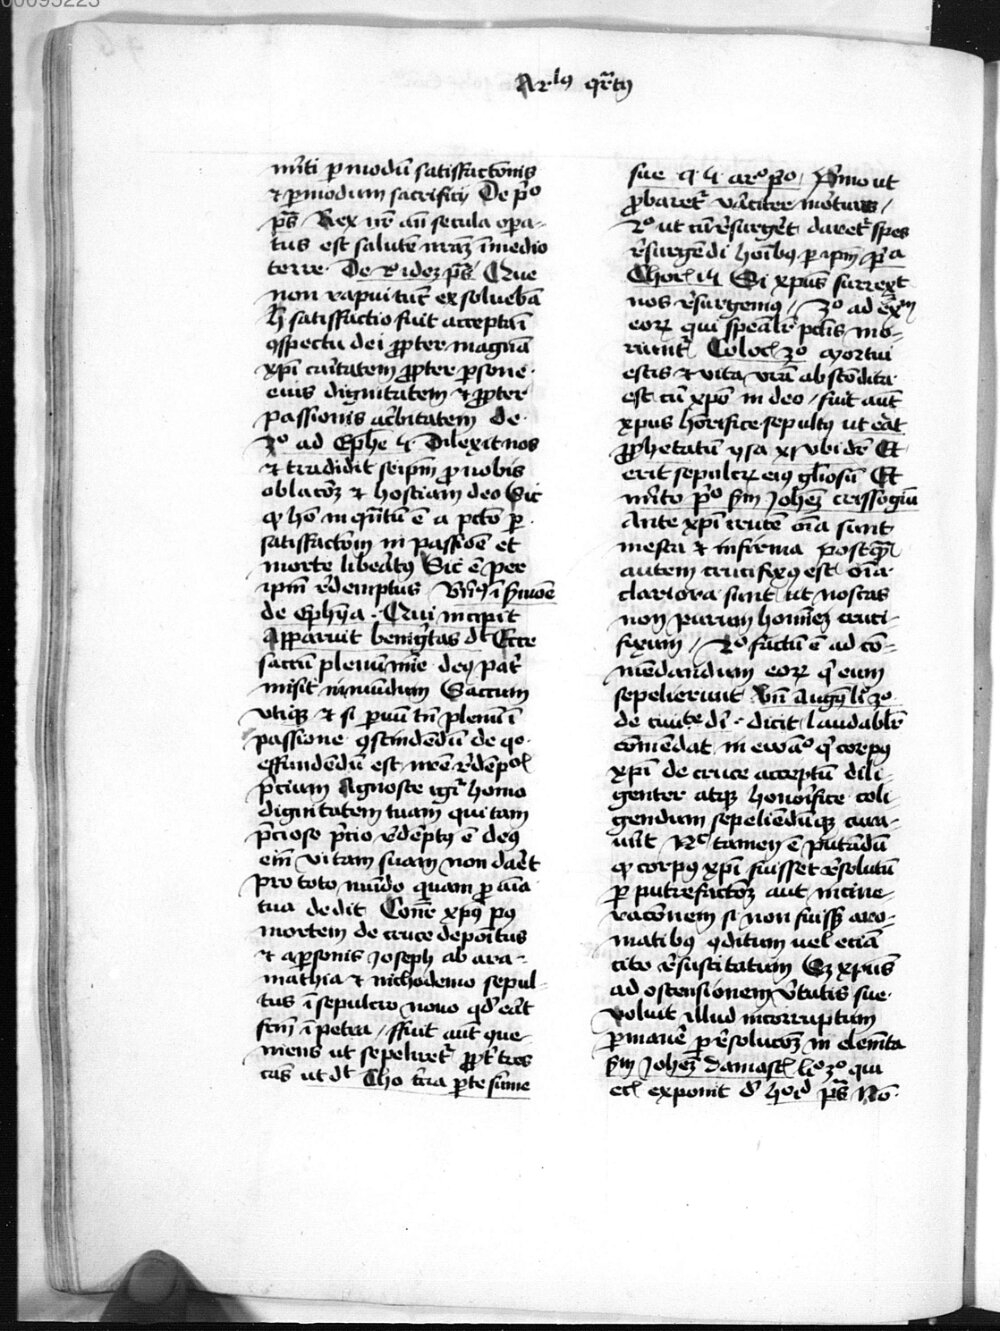 00095223
Ar.lꝰ qrtꝰ
mēti ꝑ modū satisfactōnis
⁊ ꝑ modum sacrificij De pͦ
pˢ Rex nr̄ an̄ secula opa-
tus est salutē nr̄aꝫ ī medio
terre De idoꝫ pˢ Que
non rapui tūc exsoluebā
h̄ satisfactio fuit accepta ī
ꝯspectu dei ꝓpter magnā
xp̄i caritatem ꝓpter ꝑsone
eius dignitatem ⁊ ꝓpter
passionis acbitatem de
3ͦ ad Ephe Dilexit nos
⁊ tradidit seipm̄ ꝓ nobis
oblacōꝫ ⁊ hostiam deo Sic
ꝙ hō ē a pctō ꝑ
satisfactōm in passiōe et
morte libeatꝰ Sic ē per
ipm̄ redemptus Vn̄ ī ẜmōe
de Ephyīa Qui incipit
Apparuit benigtas dt Ecce
saccū plenū mīe deꝰ pat̄
misit in mūdum Saccum
vtiqꝫ ⁊ si puū tn̄ plenū ī
passione ꝯscindēdū de qͦ
effundēdū est nr̄e rēdēpcōis
p̄cium Agnosce igr̄ homo
dignitatem tuam qui tam
p̄cioso p̄cio redēptꝰ ē deꝰ
ein̄ vitam suam non daēt
pro toto mūdo quam ꝓ aīa
tua dedit xp̄ꝰ pꝰ
mortem de cruce depoītus
⁊ a ꝑsonis Joseph ab ara-
mathia ⁊ nichodemo sepul-
tus ī sepulcro nouo qd̓ eāt
fcm̄ ī petra / ffuit aūt ꝯue-
niens ut sepeliret̉ ꝓpt̉ tres
cās ut dt Tho tr̄ia ꝑte sūme
sue q li arͦ pͦ / Pͦmo ut
ꝓbaret̉ vˢciter mortuus /
2ͦ ut cū rˢurgēt daret̉ spes
resurgēdi hoībꝰ ꝑ ipm̄ pˢa
Chor Si xp̄us surrexit
nos resurgemꝰ / 3ͦ ad exm̄
eoꝝ qui spēalr̄ pctīs mo-
riunt̉ Coloc̄ 3ͦ Mortui
estis ⁊ vita vr̄a abscōdita
est cū xp̄o in deo / fuit aūt
xp̄us honorifice sepultꝰ ut eāt
ꝓphetatū ysa xj vbi dr̄ Et
erit sepulcꝝ eiꝰ gl̄iosū Et
mīto pͦ ẜm Johēꝫ crissogm̄
Ante xp̄i crucē oīa sunt
mesta ⁊ infirma postqͣ
autem crucifixꝰ est oīa
clariora sunt ut noscas
non purum homineꝫ cruci-
fixum / 2ͦ factū ē ad cō-
mēdandum eoꝝ qͥ eum
sepelierunt Vn̄ Augꝰ li 3ͦ
de ciuīte dī dicit laudabl̄r
cōmēdat in ewāͦ qͥ corpꝰ
xp̄i de cruce acceptū dili-
genter atqꝫ honorifice coli-
gendum sepeliēdūqꝫ cura-
uīt Nͨ tamen ē putādū
ꝙ corpꝰ xp̄i fuisset resolutū
ꝑ putrefactōꝫ aut incine-
racōnem si non fuissꝫ aro-
matibꝰ ꝯditum uel eciā
cito resuscitatum Sꝫ xp̄us
ad ostensionem vˢtatis sue
voluit illud incorruptum
ꝑmanē p̄ resolucōꝫ in elemīta
ẜm Johēꝫ Damasc̄ li 3ͦ qui
ec exponit pˢ Nō